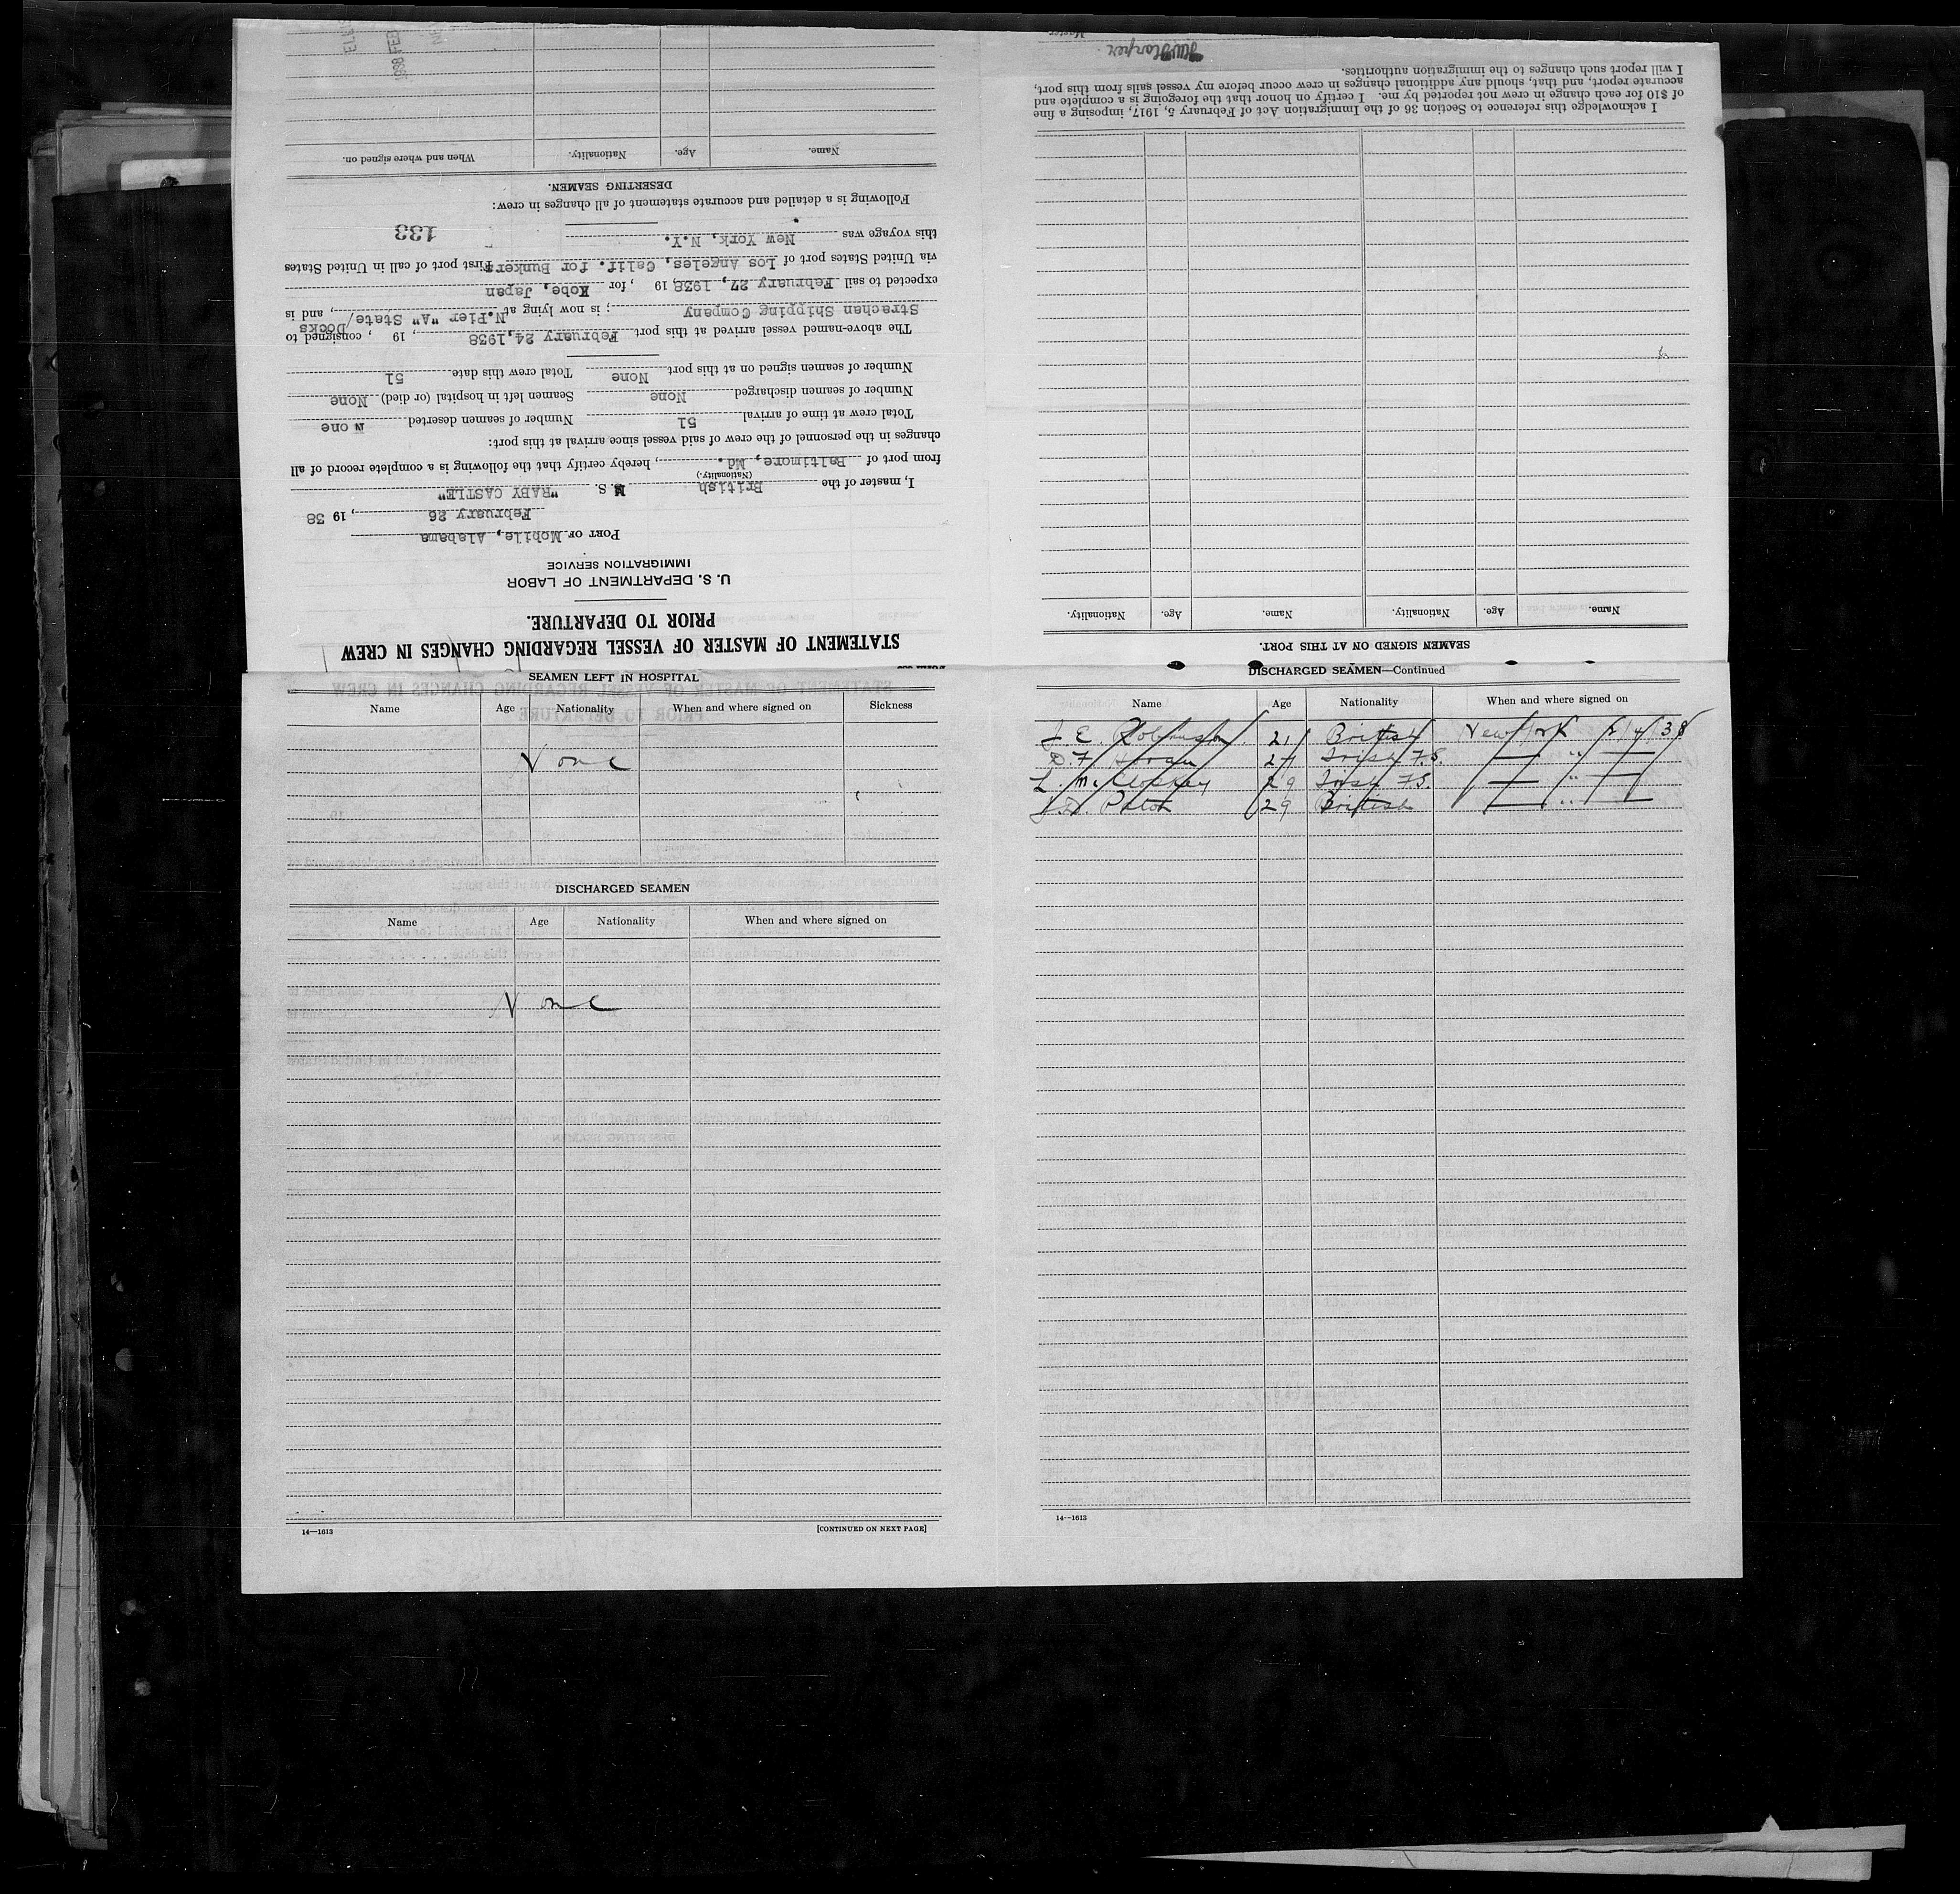 STATEMENT OF MASTER OF VESSEL REGARDING CHANGES IN CREW
PRIOR TO DEPARTURE.
U. S. DEPARTMENT OF LABOR
IMMIGRATION SERVICE
PORT OF Mobile, Alabama
February 26, 19 38
I, master of the British S. S. "RABY CASTLE"
(Nationality.)
from port of Baltimore, Md., hereby certify that the following is a complete record of all
changes in the personnel of the crew of said vessel since arrival at this port:
Total crew at time of arrival 51 Number of seamen deserted None
Number of seamen discharged None Seamen left in hospital (or died) None
Number of seamen signed on at this port None Total crew this date 51
The above-named vessel arrived at this port February 24, 1938, 19 , consigned to
Strachan Shipping Company; is now lying at N.Pier "A" State/Docks, and is
expected to sail February 27, 1938, 19 , for Kobe, Japan
via United States port of Los Angeles, Calif. for Bunkers First port of call in United States
this voyage was New York, N.Y.
133
Following is a detailed and accurate statement of all changes in crew:
DESERTING SEAMEN.
Name. Age. Nationality. When and where signed on.
1938 FEB
SEAMEN SIGNED ON AT THIS PORT.
Name. Age. Nationality. Name. Age. Nationality.
I acknowledge this reference to Section 36 of the Immigration Act of February 5, 1917, imposing a fine
of $10 for each change in crew not reported by me. I certify on honor that the foregoing is a complete and
accurate report, and that, should any additional changes in crew occur before my vessel sails from this port,
I will report such changes to the immigration authorities.
Harper
Master
SEAMEN LEFT IN HOSPITAL
Name Age Nationality When and where signed on Sickness
None
DISCHARGED SEAMEN
Name Age Nationality When and where signed on
None
14—1613 [CONTINUED ON NEXT PAGE]
DISCHARGED SEAMEN—Continued
Name Age Nationality When and where signed on
J. E. Robinson. 21 British New York 2/4/38
D. F. 27 Irish F.S. — " —
L. McCloskey 29 Irish F.S. — " —
J. D. Paton 29 British — " —
14—1613